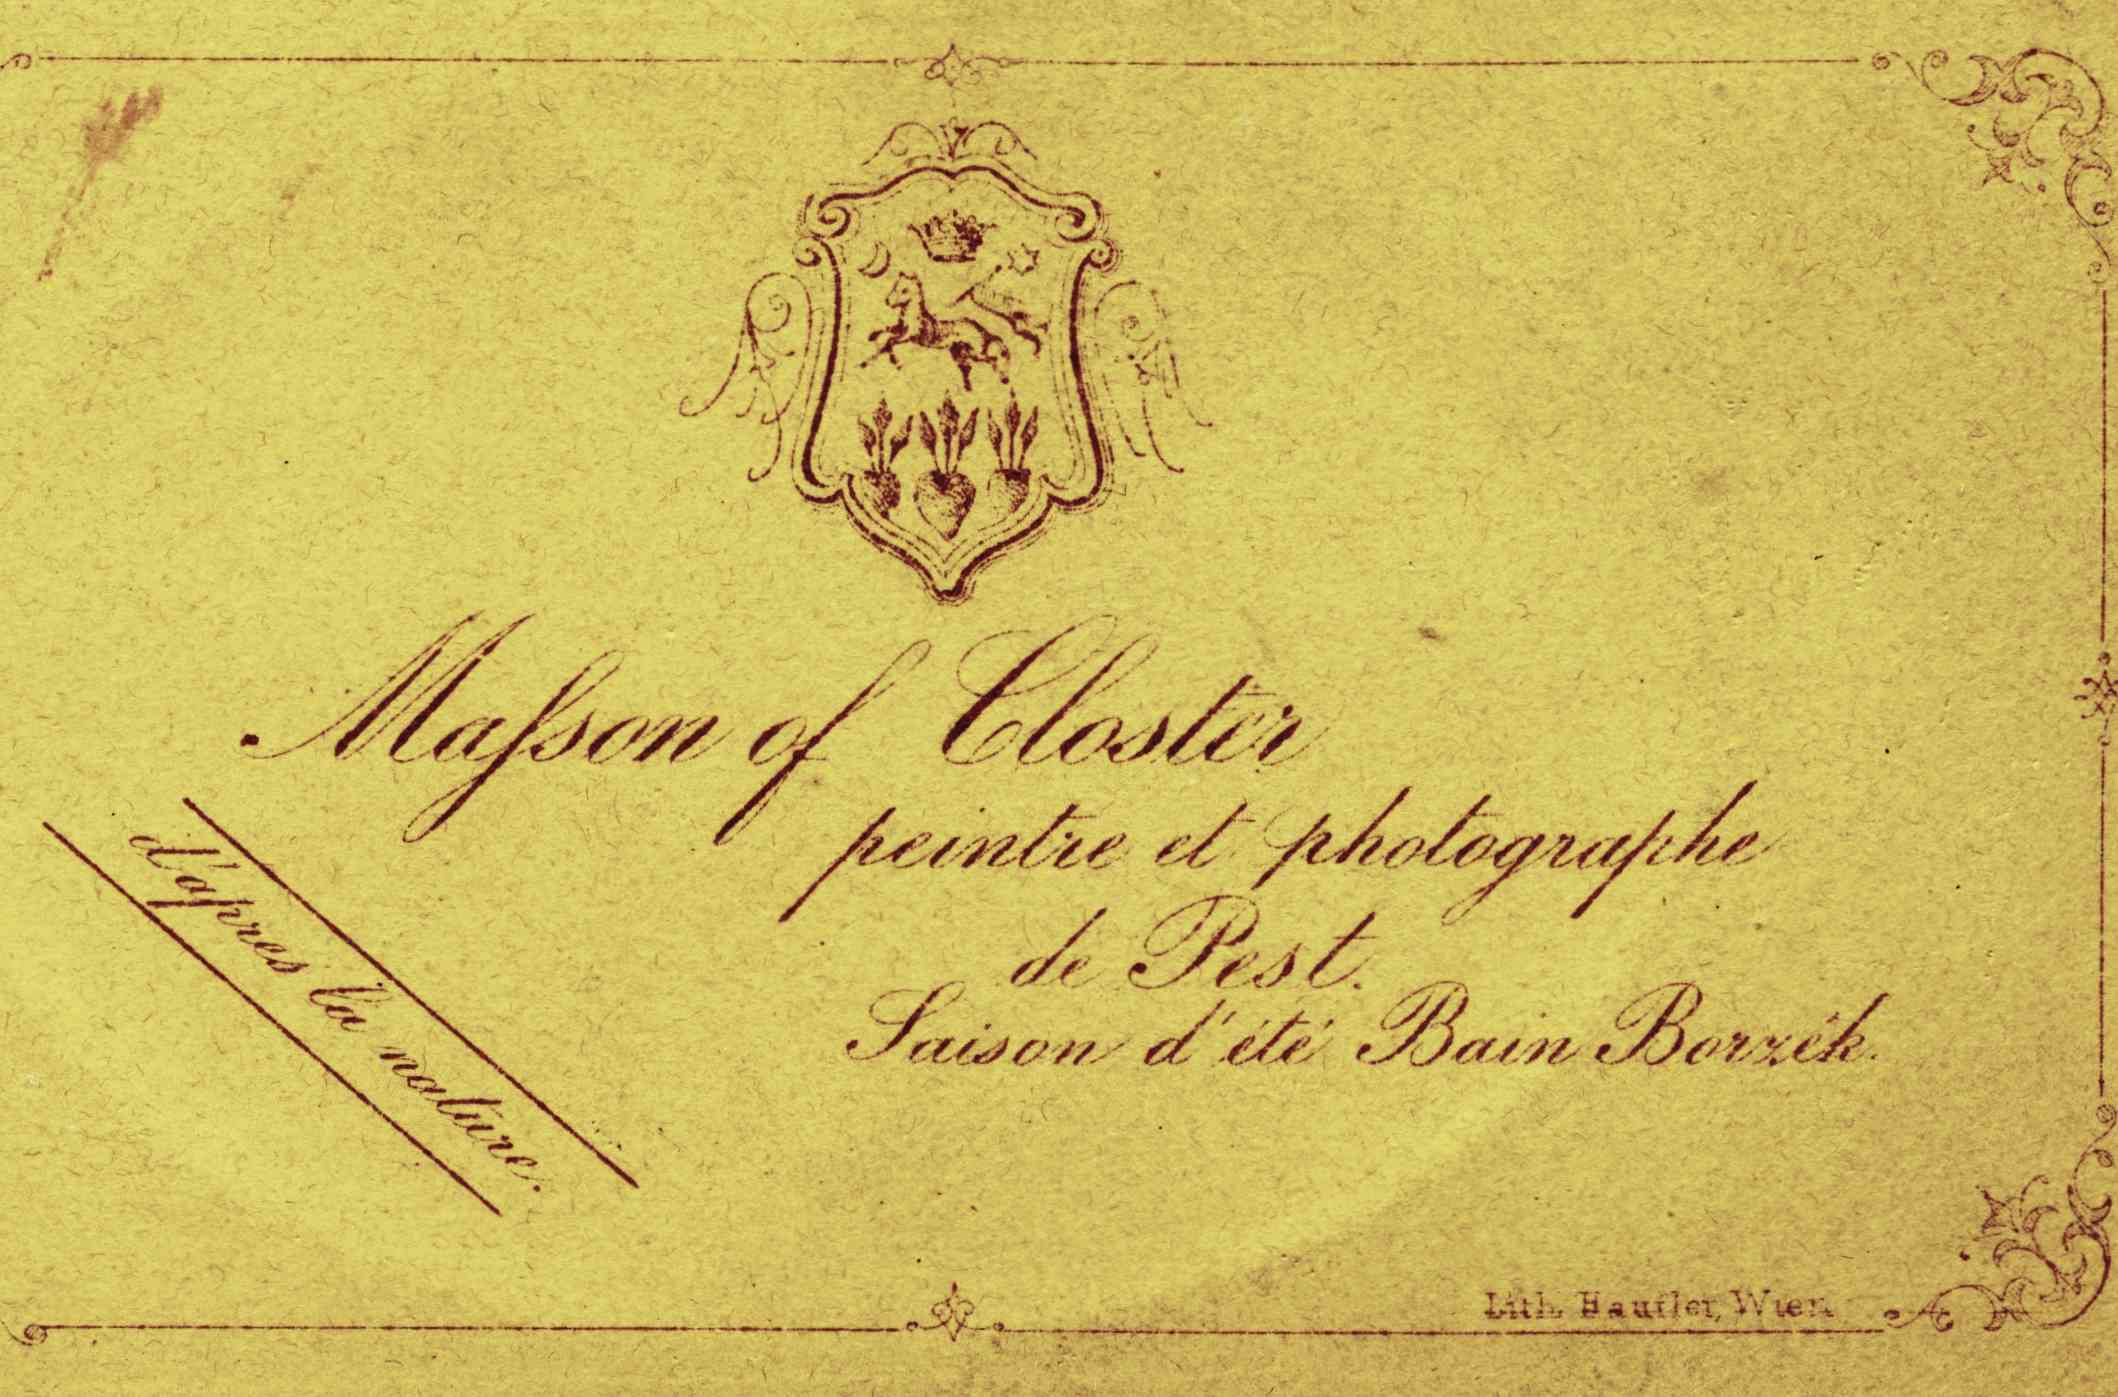 Maſson of Closter
peintre et photographe
de Pest.
Saison d'été Bain Borzék.
d'apres la nature.
Lith. Haufler, Wien.